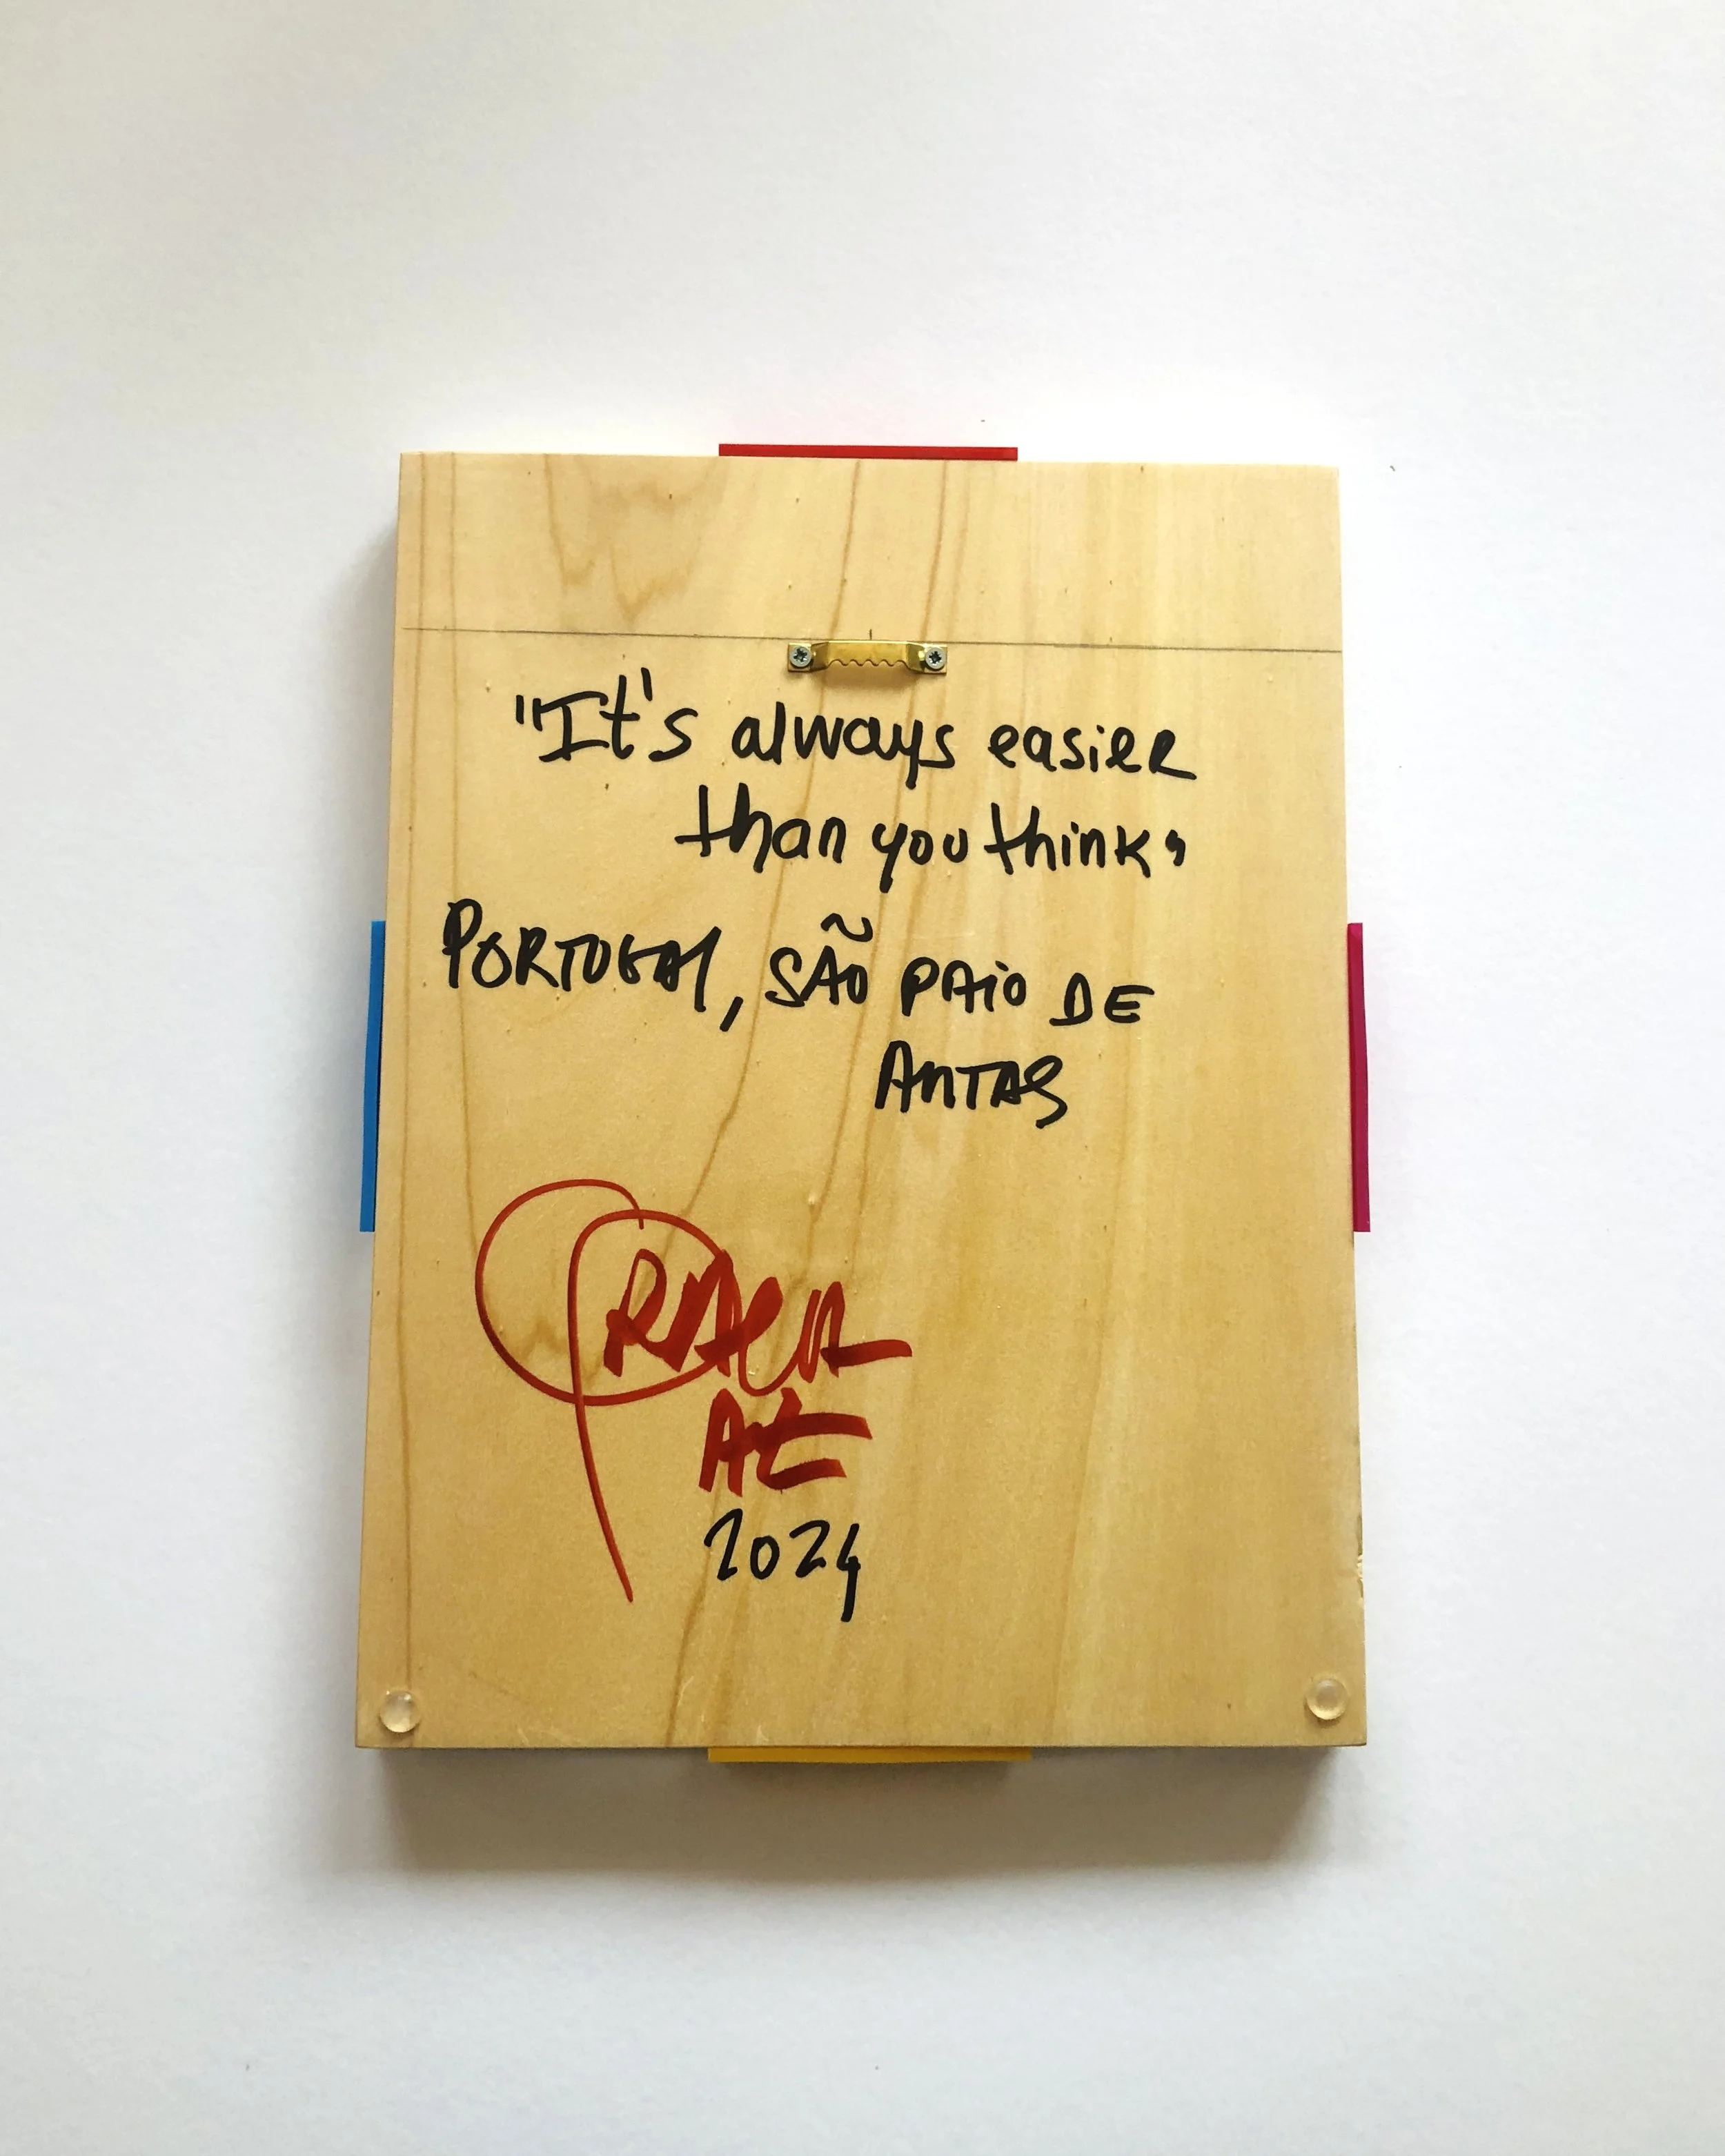 "It's always easier
than you think"
PORTUGAL, SÃO PAIO DE
ANTAS
2024